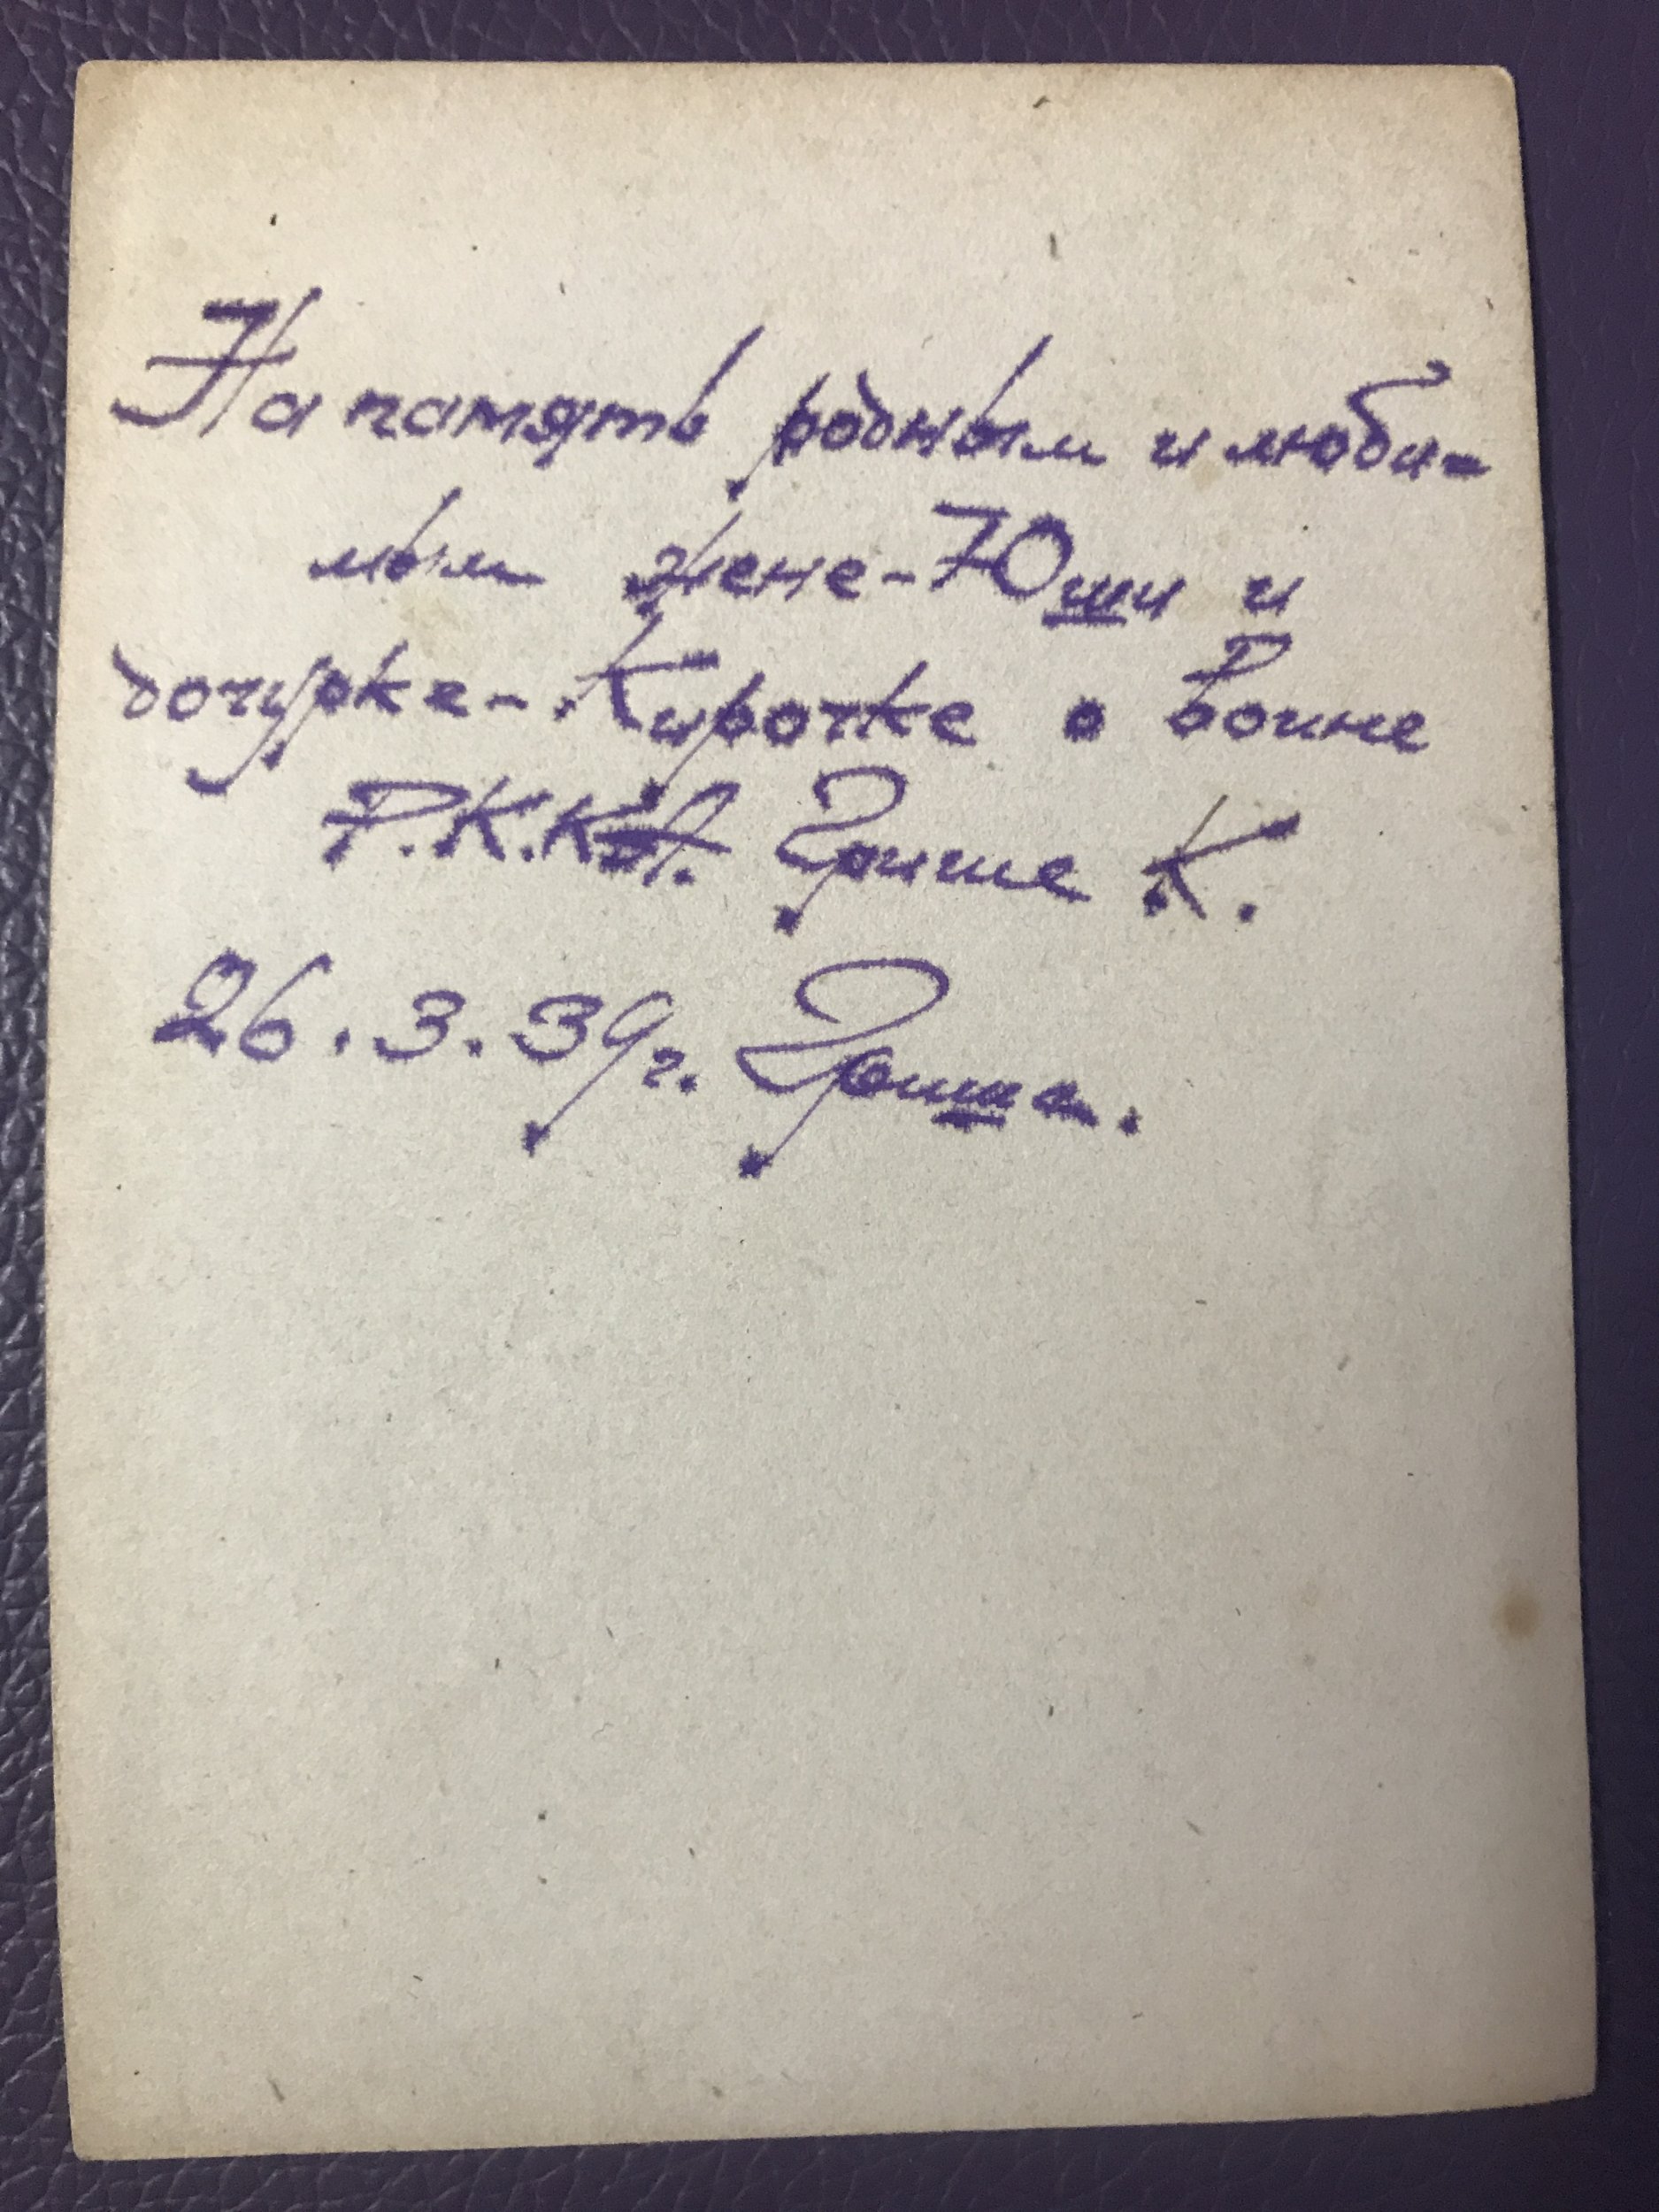 На память родным и люби-
мым жене-Юши и
дочурке-Кирочке о воине
Р.К.КА. Грише К.
26.3.39г. Гриша.